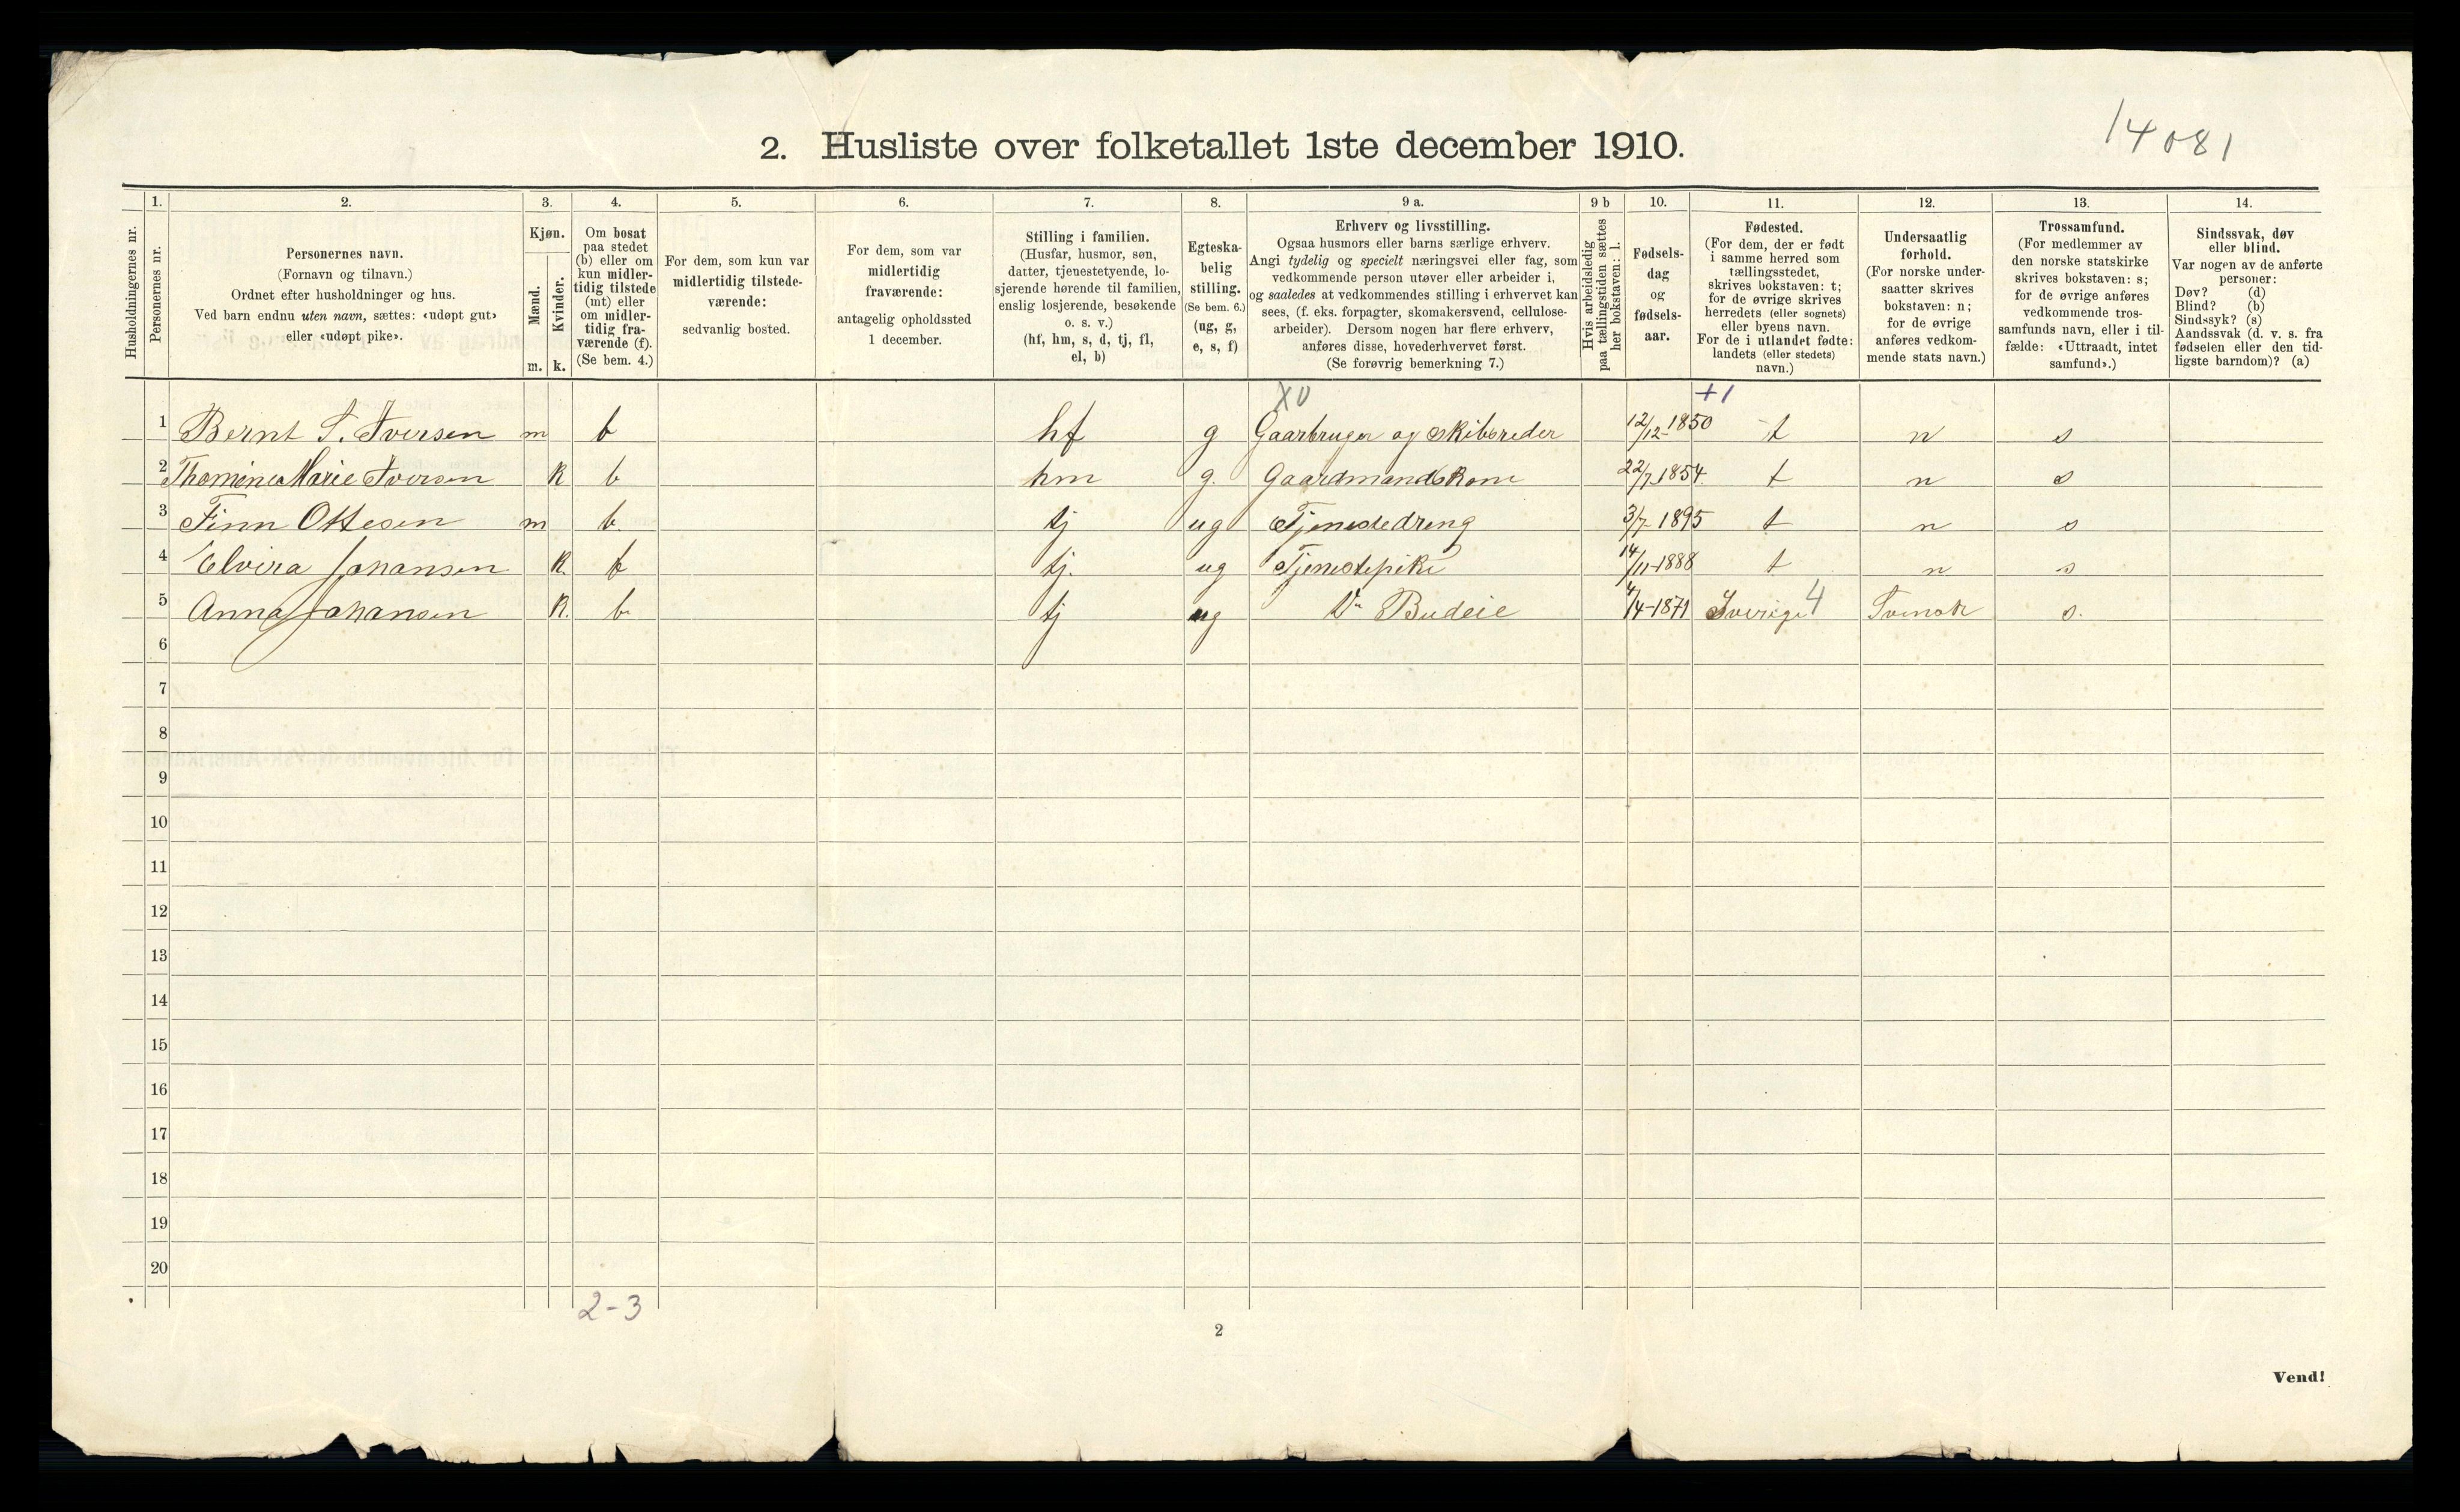 14081
2. Husliste over folketallet 1ste december 1910.
1. 2. 3. 4. 5. 6. 7. 8. 9 a. 9 b 10. 11. 12. 13. 14.
Husholdningernes nr.
Personernes nr.
Personernes navn.
(Fornavn og tilnavn.)
Ordnet efter husholdninger og hus.
Ved barn endnu uten navn, sættes: «udøpt gut»
eller «udøpt pike».
Kjøn.
Mænd.
Kvinder.
m. k.
Om bosat
paa stedet
(b) eller om
kun midler-
tidig tilstede
(mt) eller
om midler-
tidig fra-
værende (f).
(Se bem. 4.)
For dem, som kun var
midlertidig tilstede-
værende:
sedvanlig bosted.
For dem, som var
midlertidig
fraværende:
antagelig opholdssted
1 december.
Stilling i familien.
(Husfar, husmor, søn,
datter, tjenestetyende, lo-
sjerende hørende til familien,
enslig losjerende, besøkende
o. s. v.)
(hf, hm, s, d, tj, fl,
el, b)
Egteska-
belig
stilling.
(Se bem. 6.)
(ug, g,
e, s, f)
Erhverv og livsstilling.
Ogsaa husmors eller barns særlige erhverv.
Angi tydelig og specielt næringsvei eller fag, som
vedkommende person utøver eller arbeider i,
og saaledes at vedkommendes stilling i erhvervet kan
sees, (f. eks. forpagter, skomakersvend, cellulose-
arbeider). Dersom nogen har flere erhverv,
anføres disse, hovederhvervet først.
(Se forøvrig bemerkning 7.)
Hvis arbeidsledig
paa tællingstiden sættes
her bokstaven: l.
Fødsels-
dag
og
fødsels-
aar.
Fødested.
(For dem, der er født
i samme herred som
tællingsstedet,
skrives bokstaven: t;
for de øvrige skrives
herredets (eller sognets)
eller byens navn.
For de i utlandet fødte:
landets (eller stedets)
navn.)
Undersaatlig
forhold.
(For norske under-
saatter skrives
bokstaven: n;
for de øvrige
anføres vedkom-
mende stats navn.)
Trossamfund.
(For medlemmer av
den norske statskirke
skrives bokstaven: s;
for de øvrige anføres
vedkommende tros-
samfunds navn, eller i til-
fælde: «Uttraadt, intet
samfund».)
Sindssvak, døv
eller blind.
Var nogen av de anførte
personer:
Døv? (d)
Blind? (b)
Sindssyk? (s)
Aandssvak (d. v. s. fra
fødselen eller den tid-
ligste barndom)? (a)
X0 +1
1 Bernt S. Iversen m b hf g Gaarbruger og skibsreder 12/12-1850 t n s
2 Thomine Marie Iversen k b hm g. Gaardmandskone 22/7 1854 t n s
3 Finn Ottesen m b. tj ug Tjenestedreng 3/7-1895 t n s
4 Elvira Johansen k. b tj. ug Tjenestepike 14/11-1888 t n s
5 Anna Johansen k. b tj ug Budeie /4-1871 Sverige 4 Svensk s.
6
7
8
9
10
11
12
13
14
15
16
17
18
19
20
2-3
2
Vend!